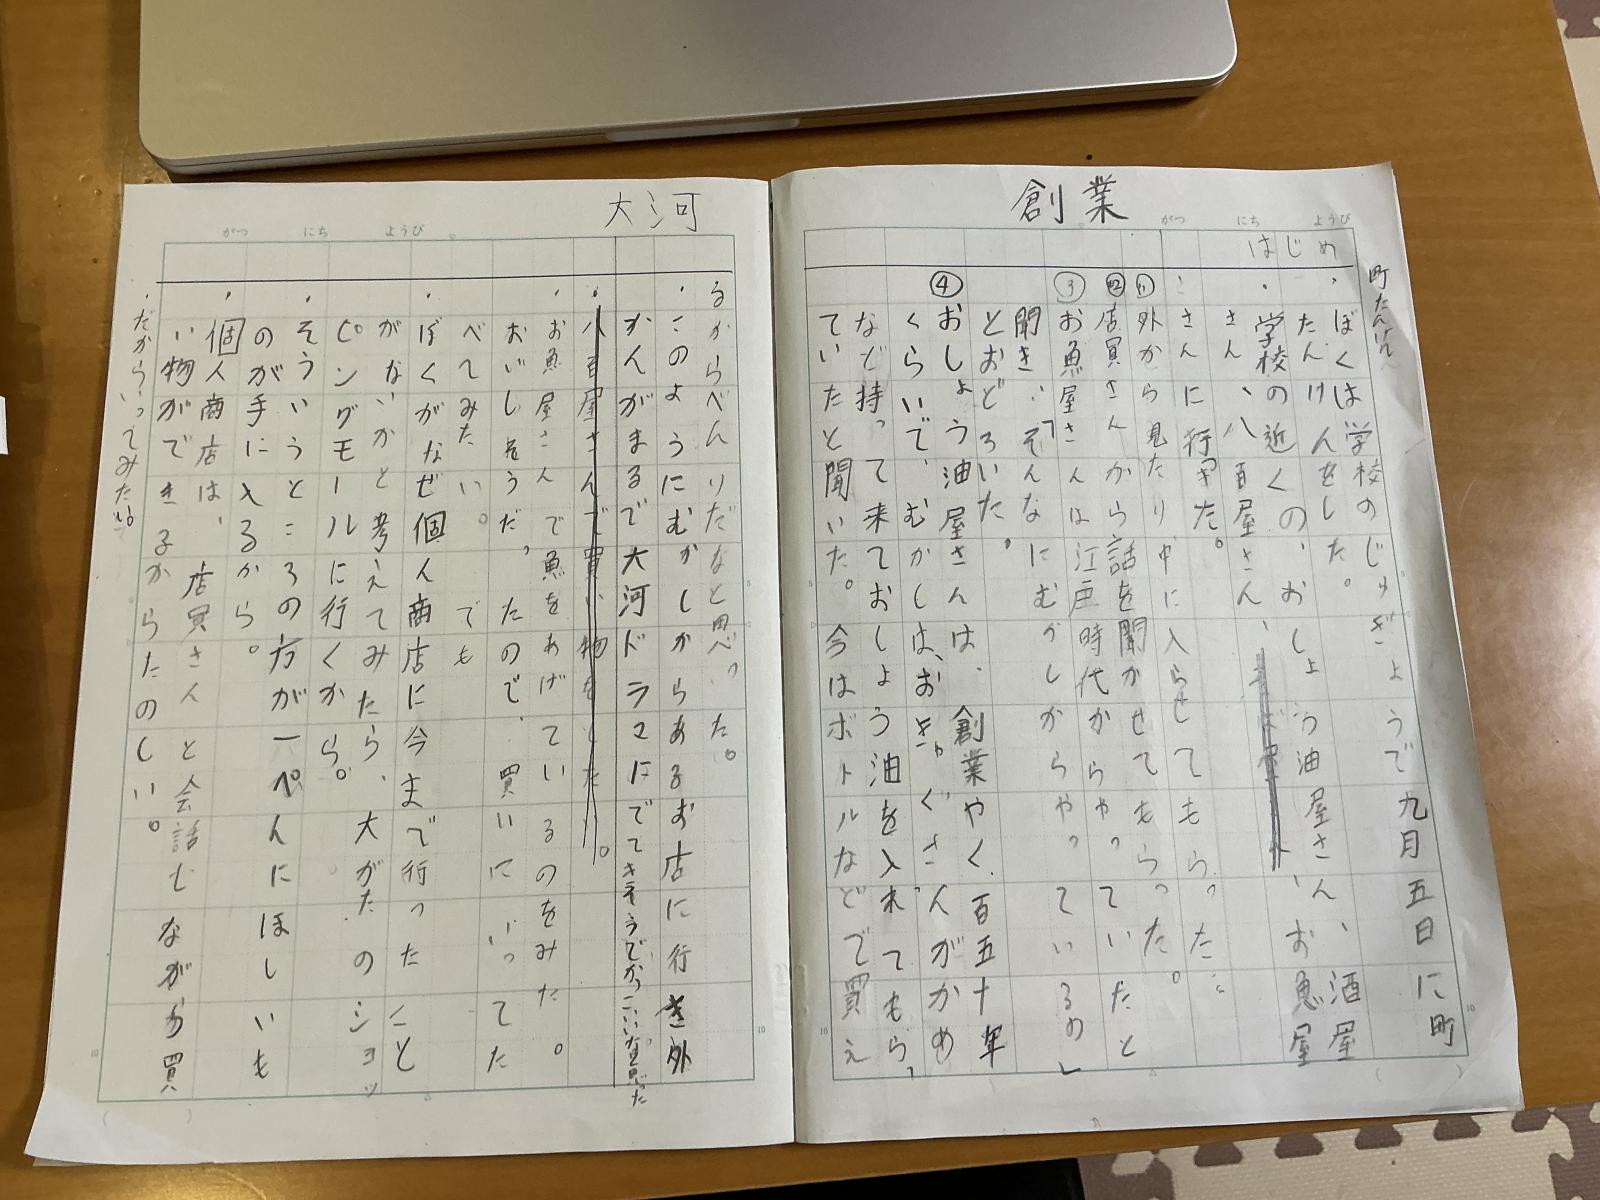 創業
がつ にち ようび
はじめ
町たんけん
・ぼくは学校のじゅぎょうで九月五日に町
たんけんをした。
・学校の近くの、おしょう油屋さん、酒屋
さん、八百屋さん、お魚屋
さんに行った。
①外から見たり中に入らせてもらった。
②店員さんから話を聞かせてもらった。
③お魚屋さんは「江戸時代からやっていたと
聞き、そんなにむかしからやっているの」
とおどろいた。
④おしょう油屋さんは、創業やく百五十年
くらいで、むかしは、お客さんがかめ
など持って来ておしょう油を入れてもらっ
ていたと聞いた。今はボトルなどで買え
大河
がつ にち ようび
るからべんりだなと思った。
・このようにむかしからあるお店に行き外
かんがまるで大河ドラマにでてきそうでかっこいいなと思った
・八百屋さんで買い物をしたい。
・お魚屋さんで魚をあげているのをみた。
おいしそうだったので、買いにいってた
べてみたい。でも
・ぼくがなぜ個人商店に今まで行ったこと
がないかと考えてみたら、大がたのショッ
ピングモールに行くから。
・そういうところの方が一ぺんにほしいも
のが手に入るから。
・個人商店は、店員さんと会話しながら買
い物ができるからたのしい。
・だからいってみたい。